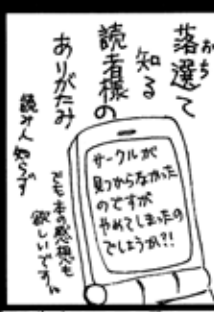 落選て
おち
知る
読者様の
ありがたみ
読み人知らず
サークルが
見つからなかった
のですが
やめてしまったの
でしょうか?!
でも本の感想も
欲しいです